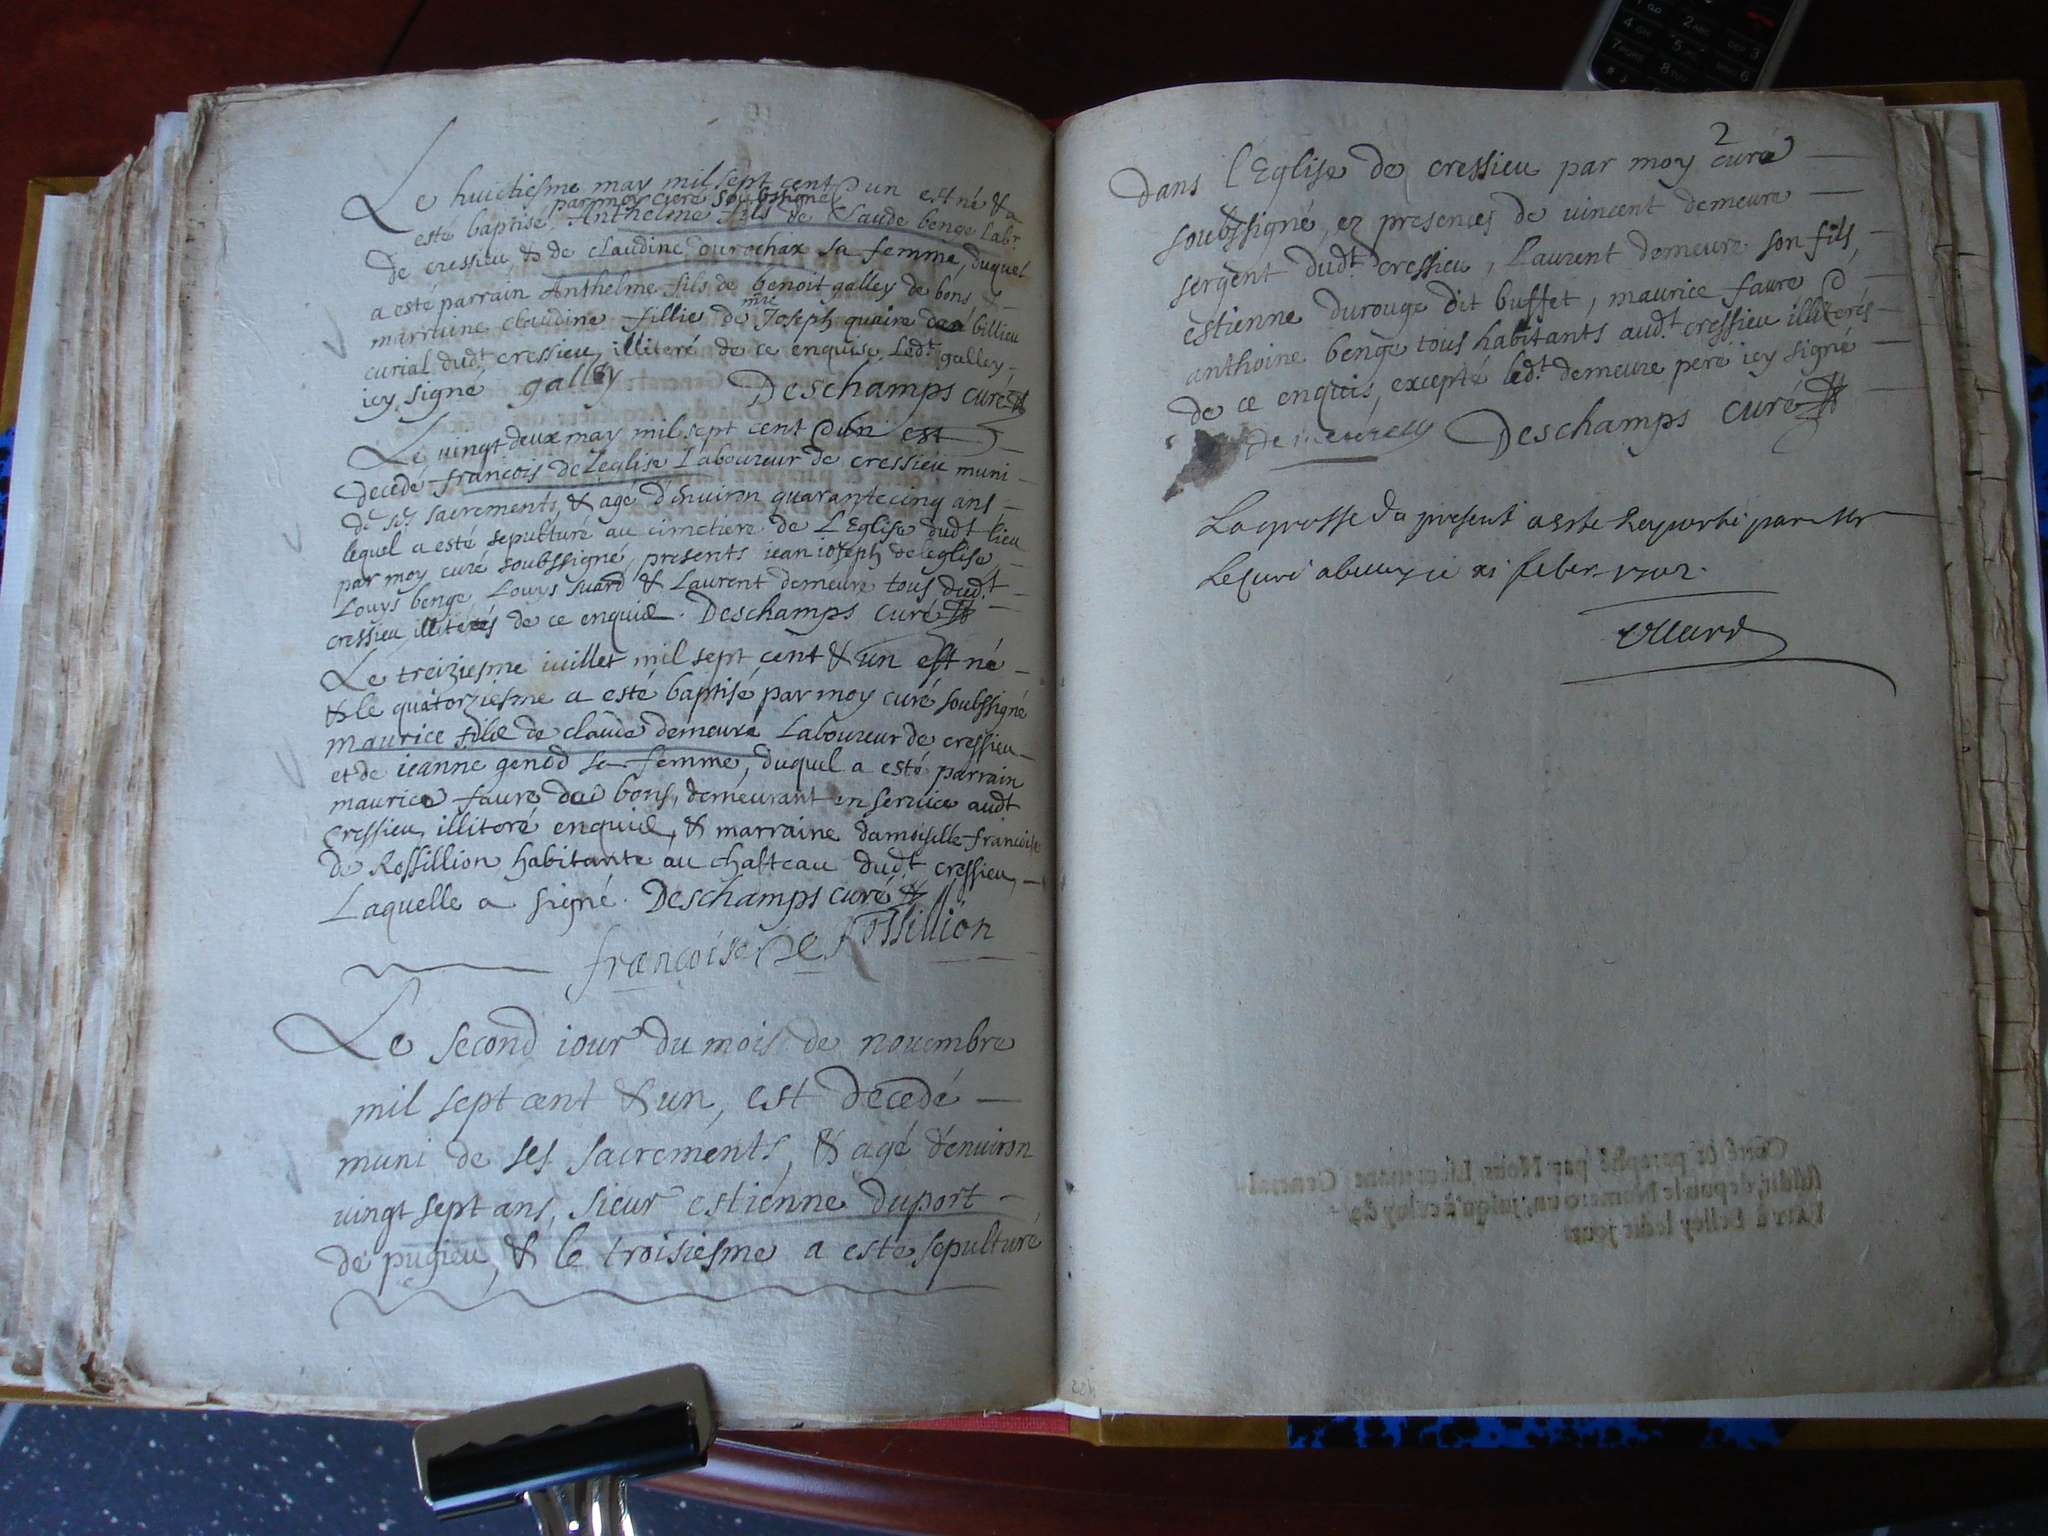 Le huictiesme may mil sept cent & un est né & a
par moy curé soubssigné
esté baptisé Anthelme fils de Claude benge Labr
de cressieu & de claudine durochax sa femme, duquel
a esté parrain Anthelme fils de benoit galley de bons, & –
mre
marraine claudine fillie de Joseph quaire billieu
curial dudt cressieu, illiteré de ce enquise. Ledt galley –
icy signé galley Deschamps curé
Le vingt deux may mil sept cent & un est –
decedé francois de leglise Laboureur de cressieu muni –
de ses sacrements, & agé d'environ quarante cinq ans –
lequel a esté sepulturé au cimetiere de L'Eglise dudt lieu
par moy curé soubssigné, presents iean ioseph deleglise –
Louys benge Louys suard & Laurent demeure tous dudt –
cressieu illiterés de ce enquis. Deschamps curé
Le treiziesme iuillet mil sept cent & un est né –
& le quatorziesme a esté baptisé par moy curé soubssigné
maurice fils de claude demeure Laboureur de cressieu –
et de ieanne genod sa femme, duquel a esté parrain
maurice faure de bons, demeurant en service audt
Cressieu illiteré enquis, & marraine damoiselle francoise
de Rossillion habitante au chasteau dudt cressieu, –
Laquelle a signé. Deschamps curé
francoise De Rossillion
Le second iour du mois de nouembre
mil sept cent & un, est decedé –
muni de ses sacrements, & agé d'enuiron
vingt sept ans, sieur estienne duport –
de pugieu, & le troisiesme a esté sepulturé
2
dans l'Eglise de cressieu par moy curé –
soubssigné, ez presences de vincent demeure –
sergent dudt cressieu, Laurent demeure son fils,
estienne durouge dit buffet, maurice faure &
anthoine benge tous habitants audt cressieu illiterés –
de ce enquis, excepté ledt demeure pere icy signé –
demeure Deschamps curé
La grosse du present a este Raporté par Mr
Le Curé ce xi feber 1702.
Cotté & paraphé par Nous Lieutenant General
susdit, depuis le Nomero un, jusqu'à celuy de
Fait à Belley ledit jour